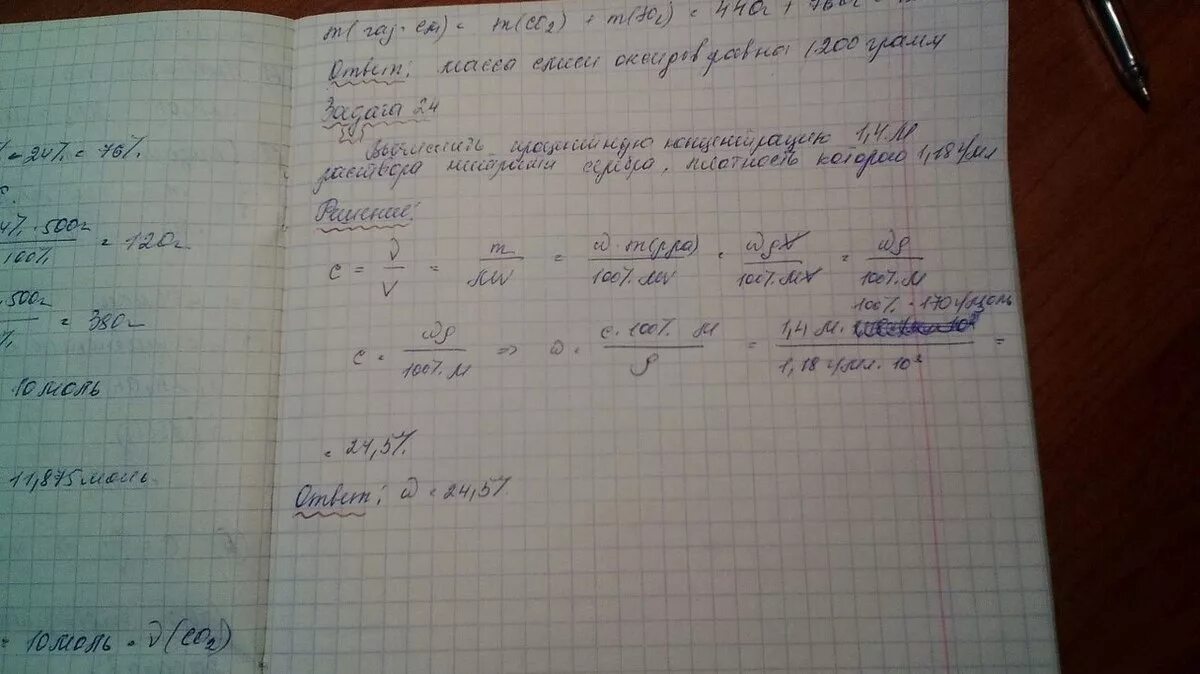 % - 24% = 76%
4% · 500г
100%
= 120г
· 500г
%
= 380г
10 моль
11,875 моль
= 10 моль = ν(CO₂)
m(газ. см) = m(CO₂) + m(SO₂) = 440г + 760г =
Ответ: масса смеси оксидов равна 1200 грамм
Задача 24
Вычислить процентную концентрацию 1,4 М
раствора нитрата серебра, плотность которого 1,18 г/мл
Решение:
c = ν/V = m/MV = ω · m(р-ра)/100% · MV = ωρV/100% · MV = ωρ/100% · M
c = ωρ/100% · M => ω = c · 100% · M/ρ = 1,4 М · 100% · 170 г/моль/1,18 г/мл · 10³ =
= 24,5%
Ответ: ω = 24,5%